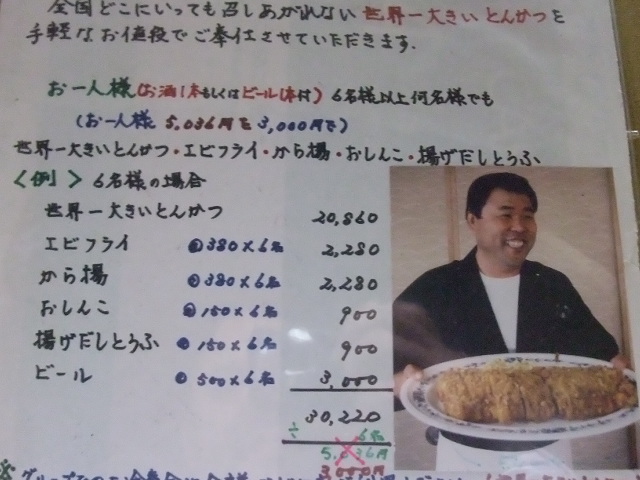 全国どこにいっても召しあがれない世界一大きいとんかつを
手軽なお値段でご奉仕させていただきます.
お一人様(お酒1本もしくはビール1本付) 6名様以上何名様でも
(お一人様 5,036円を3,000円で)
世界一大きいとんかつ・エビフライ・から揚・おしんこ・揚げだしとうふ
<例> 6名様の場合
世界一大きいとんかつ 20,860
エビフライ @380×6名 2,280
から揚 @380×6名 2,280
おしんこ @150×6名 900
揚げだしとうふ @150×6名 900
ビール @500×6名 3,000
30,220
÷ 6名
5,036円
3,000円
※グループ